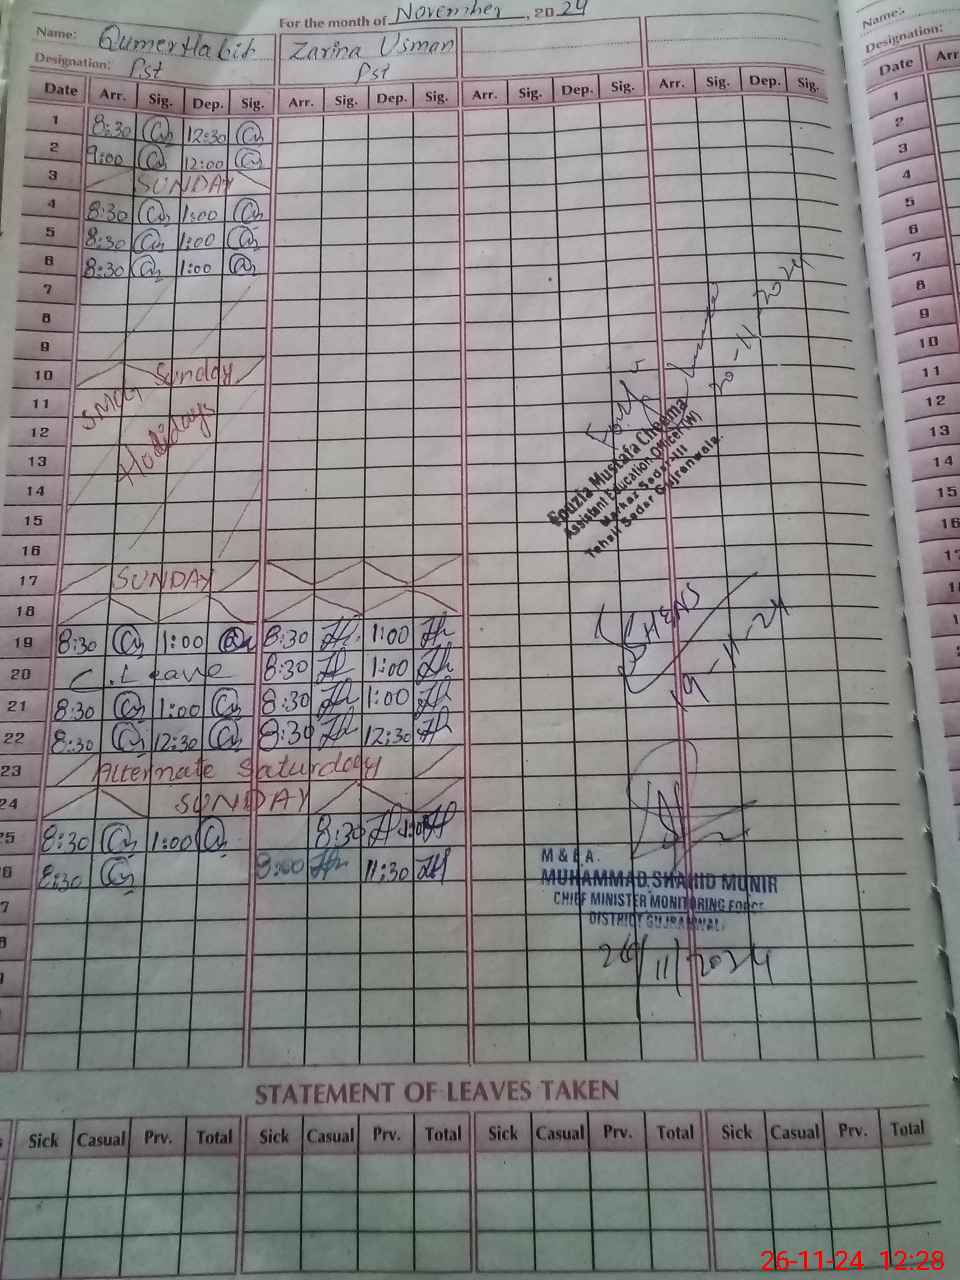 For the month of November, 2024
Name: Qumer Habib Zarina Usman
Designation: Pst Pst
Date Arr. Sig. Dep. Sig. Arr. Sig. Dep. Sig. Arr. Sig. Dep. Sig. Arr. Sig. Dep. Sig.
1 8:30 12:30
2 9:00 12:00
3 SUNDAY
4 8:30 1:00
5 8:30 1:00
6 8:30 1:00
7
8
9
10 Sunday
11 Smog
12 Holidays
13
14
15
16
17 SUNDAY
18
19 8:30 1:00 8:30 1:00
20 C.Leave 8:30 1:00
21 8:30 1:00 8:30 1:00
22 8:30 12:30 8:30 12:30
23 Alternate Saturday
24 SUNDAY
25 8:30 1:00 8:30 1:00
6 8:30 9:00 11:30
7
8
20-11-2024
Fouzia Mustafa Cheema
Assistant Education Officer (W)
Markaz Sadar-III
Tehsil Sadar Gujranwala.
19-11-24
M & E A.
MUHAMMAD SHAHID MUNIR
CHIEF MINISTER MONITORING FORCE
DISTRICT GUJRANWALA
26/11/2024
STATEMENT OF LEAVES TAKEN
Sick Casual Prv. Total Sick Casual Prv. Total Sick Casual Prv. Total Sick Casual Prv. Total
Name:
Designation:
Date Arr
1
2
3
4
5
6
7
8
9
10
11
12
13
14
15
16
26-11-24 12:28